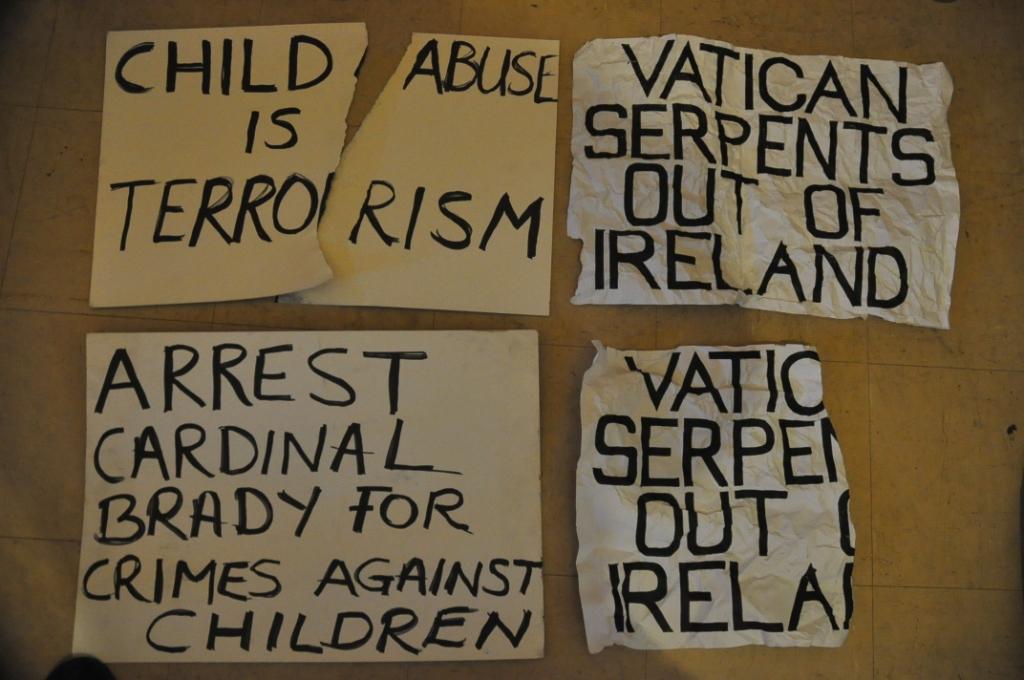 CHILD ABUSE
IS
TERRORISM
VATICAN
SERPENTS
OUT OF
IRELAND
ARREST
CARDINAL
BRADY FOR
CRIMES AGAINST
CHILDREN
VATIC
SERPEN
OUT
IRELA